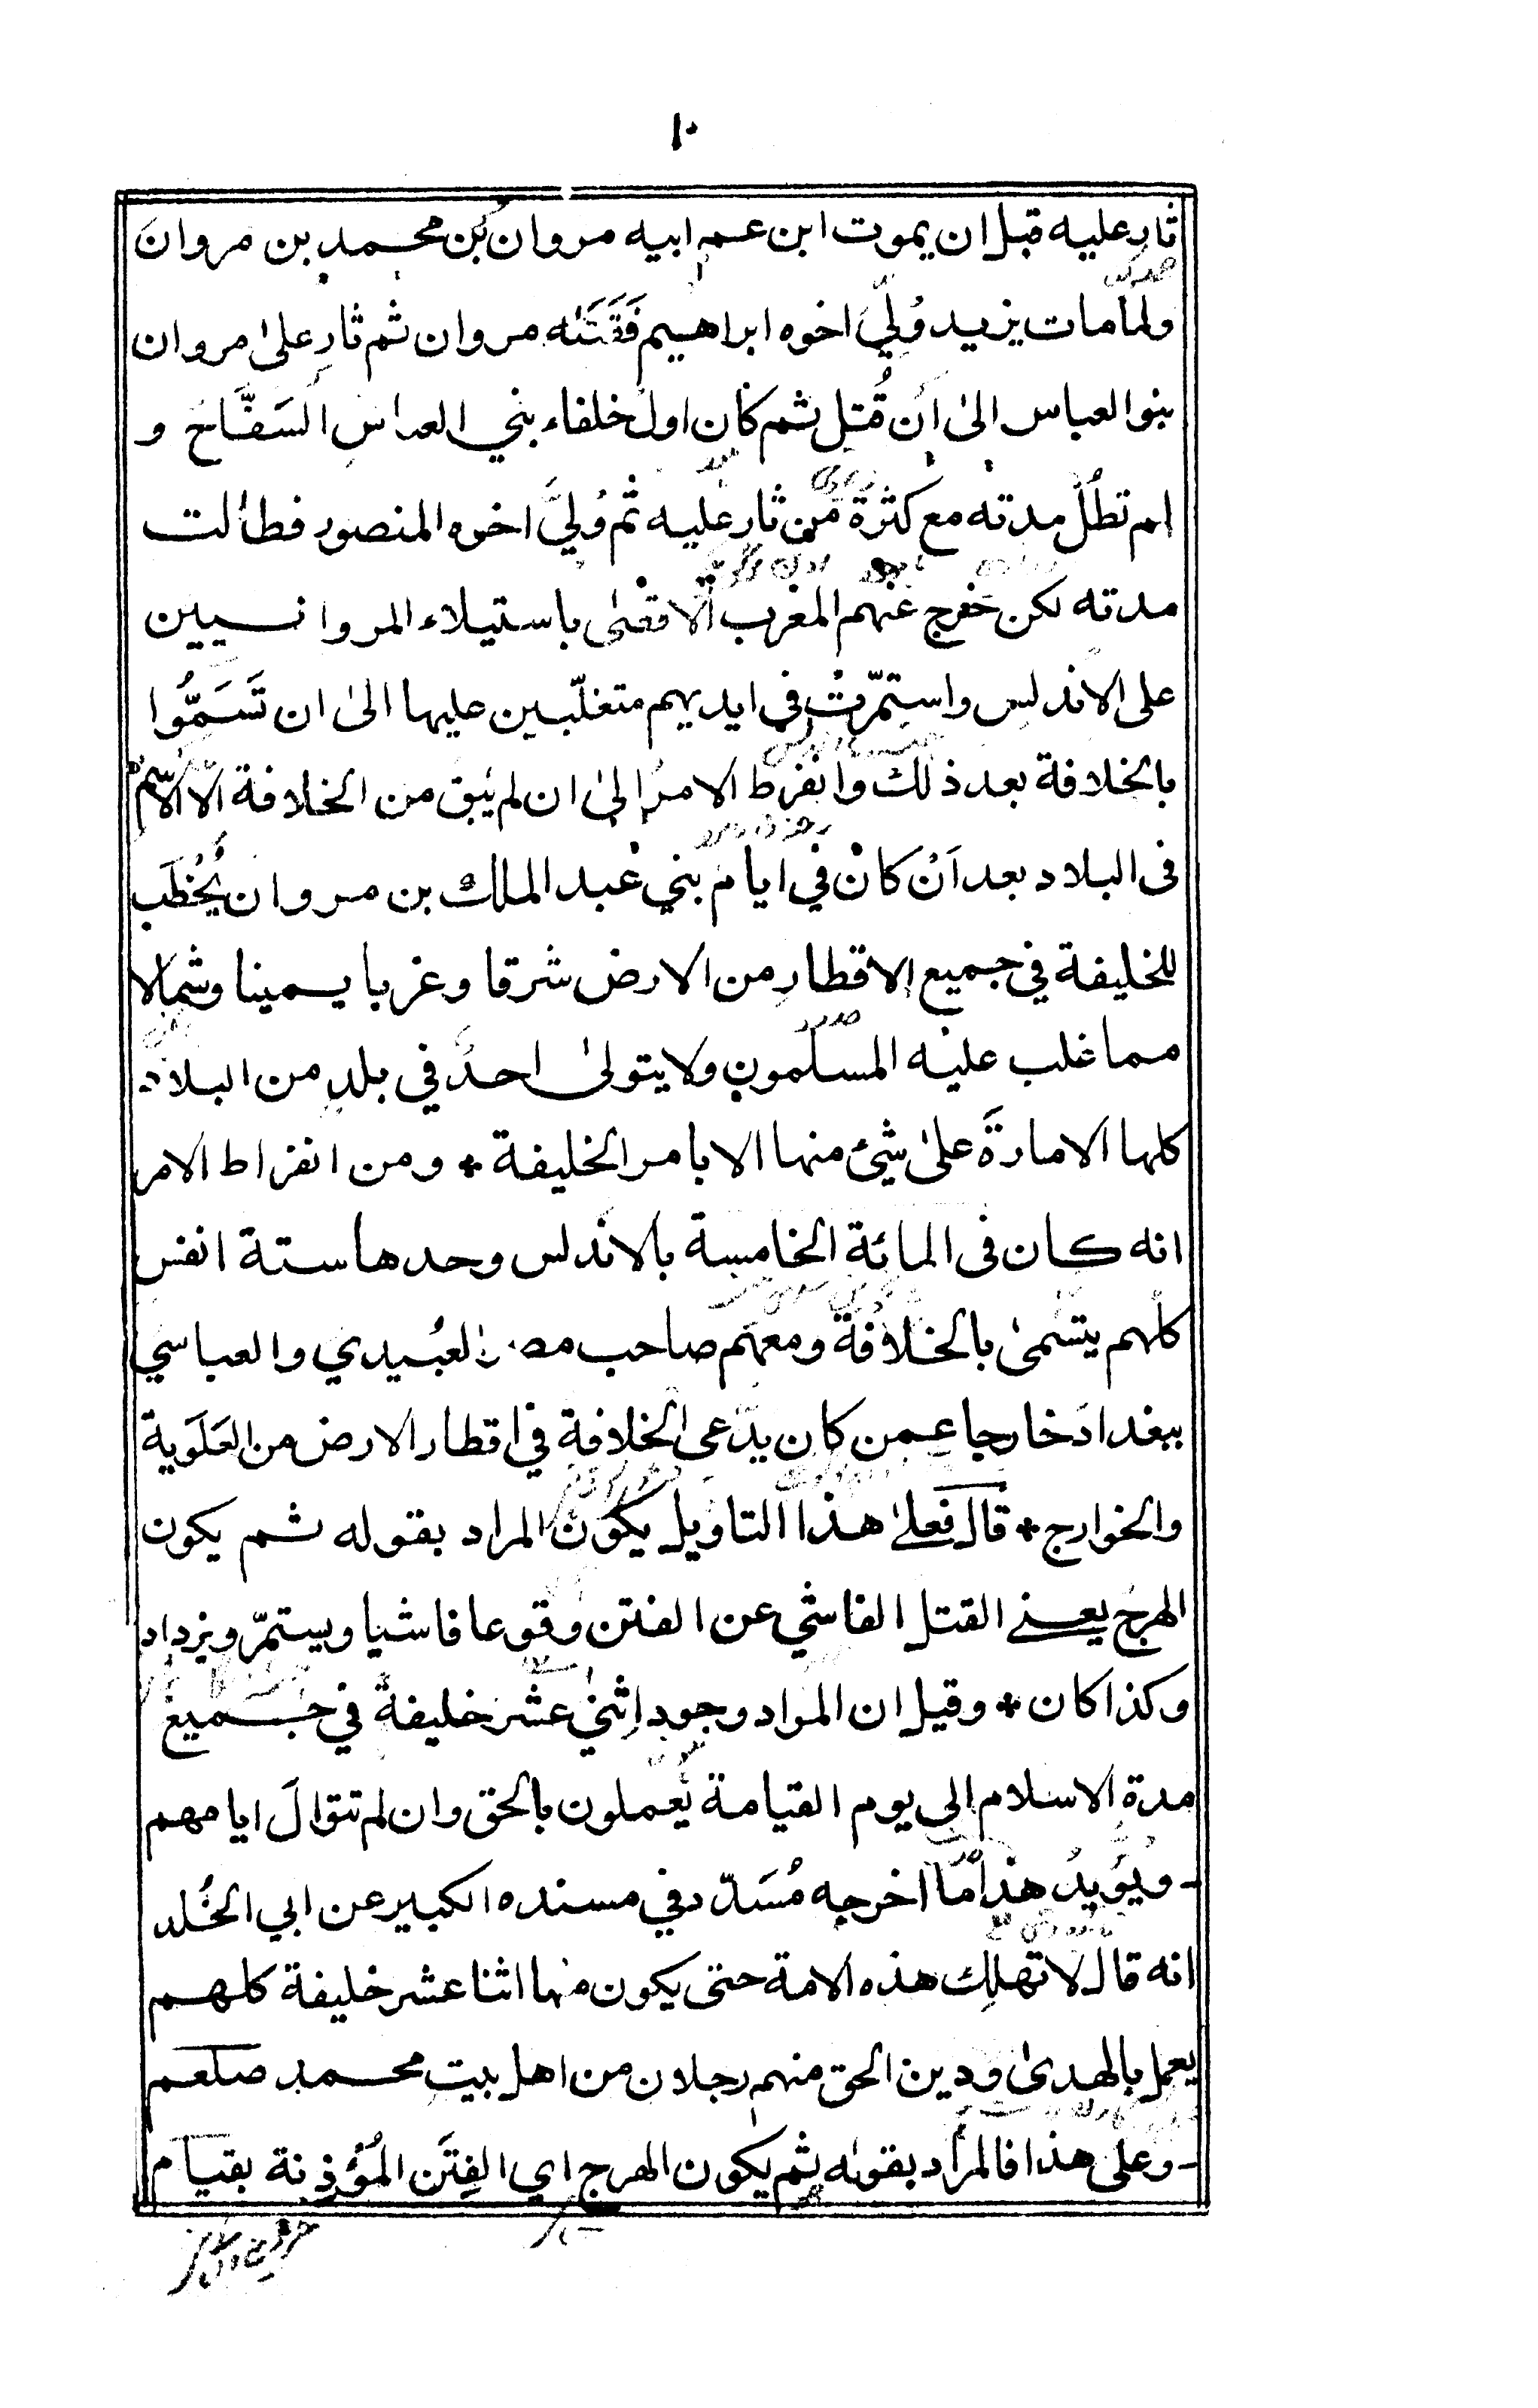 ١٠
ثار عليه قبل ان يموت ابن عم ابيه مروان بن محمد بن مروان
ولما مات يزيد وُلِّي اخوه ابراهيم فَقَتَله مروان ثم ثار على مروان
بنو العباس الى اَن قُتِل ثم كان اول خلفاء بني العباس السَفّاح و
لم تطُل مدته مع كثرة من ثار عليه ثم وُلِيَّ اخوه المنصور فطالت
مدته لكن خرج عنهم المغرب الاقصى باستيلاء المروانسيين
على الاندلس واستمرّت في ايديهم متغلّبين عليها الى ان تَسَمُّوا
بالخلافة بعد ذلك وانفرط الامر الى ان لم يبق من الخلافة الا الاسم
فى البلاد بعد اَن كان في ايام بني عبد الملك بن مروان يُخُطَب
للخليفة في جميع الاقطار من الارض شرقا وغربا يمينا وشمالا
مما غلب عليه المسلمون ولا يتولى احدٌ في بلدٍ من البلاد
كلها الامارةَ على شئ منها الا بامر الخليفة * ومن انفراط الامر
انه كان فى المائة الخامسة بالاندلس وحدها ستة انفس
كلهم يتسمى بالخلافة ومعهم صاحب مصر العُبيدي والعباسي
ببغداد خارجا عمن كان يدّعى الخلافة في اقطار الارض من العَلَوية
والخوارج * قال فعلى هذا التاويل يكون المراد بقوله ثم يكون
الهرج يعنے القتل الفاشي عن الفتن وقوعا فاشيا ويستمرّ ويزداد
وكذا كان * وقيل ان المراد وجود اِثنَى عشر خليفة في جميع
مدة الاسلام الى يوم القيامة يعملون بالحق وان لم تتوالَ ايامهم
- ويُؤيدُ هذا ما اخرجه مُسَدّد في مسنده الكبير عن ابي الخُلد
انه قال لا تهلِك هذه الامة حتى يكون منها اثنا عشر خليفة كلهم
يعمل بالهدى ودين الحق منهم رجلان من اهل بيت محمد صلعم
- وعلى هذا فالمراد بقوله ثم يكون الهرج اي الفِتَن المُؤذِنة بقيام